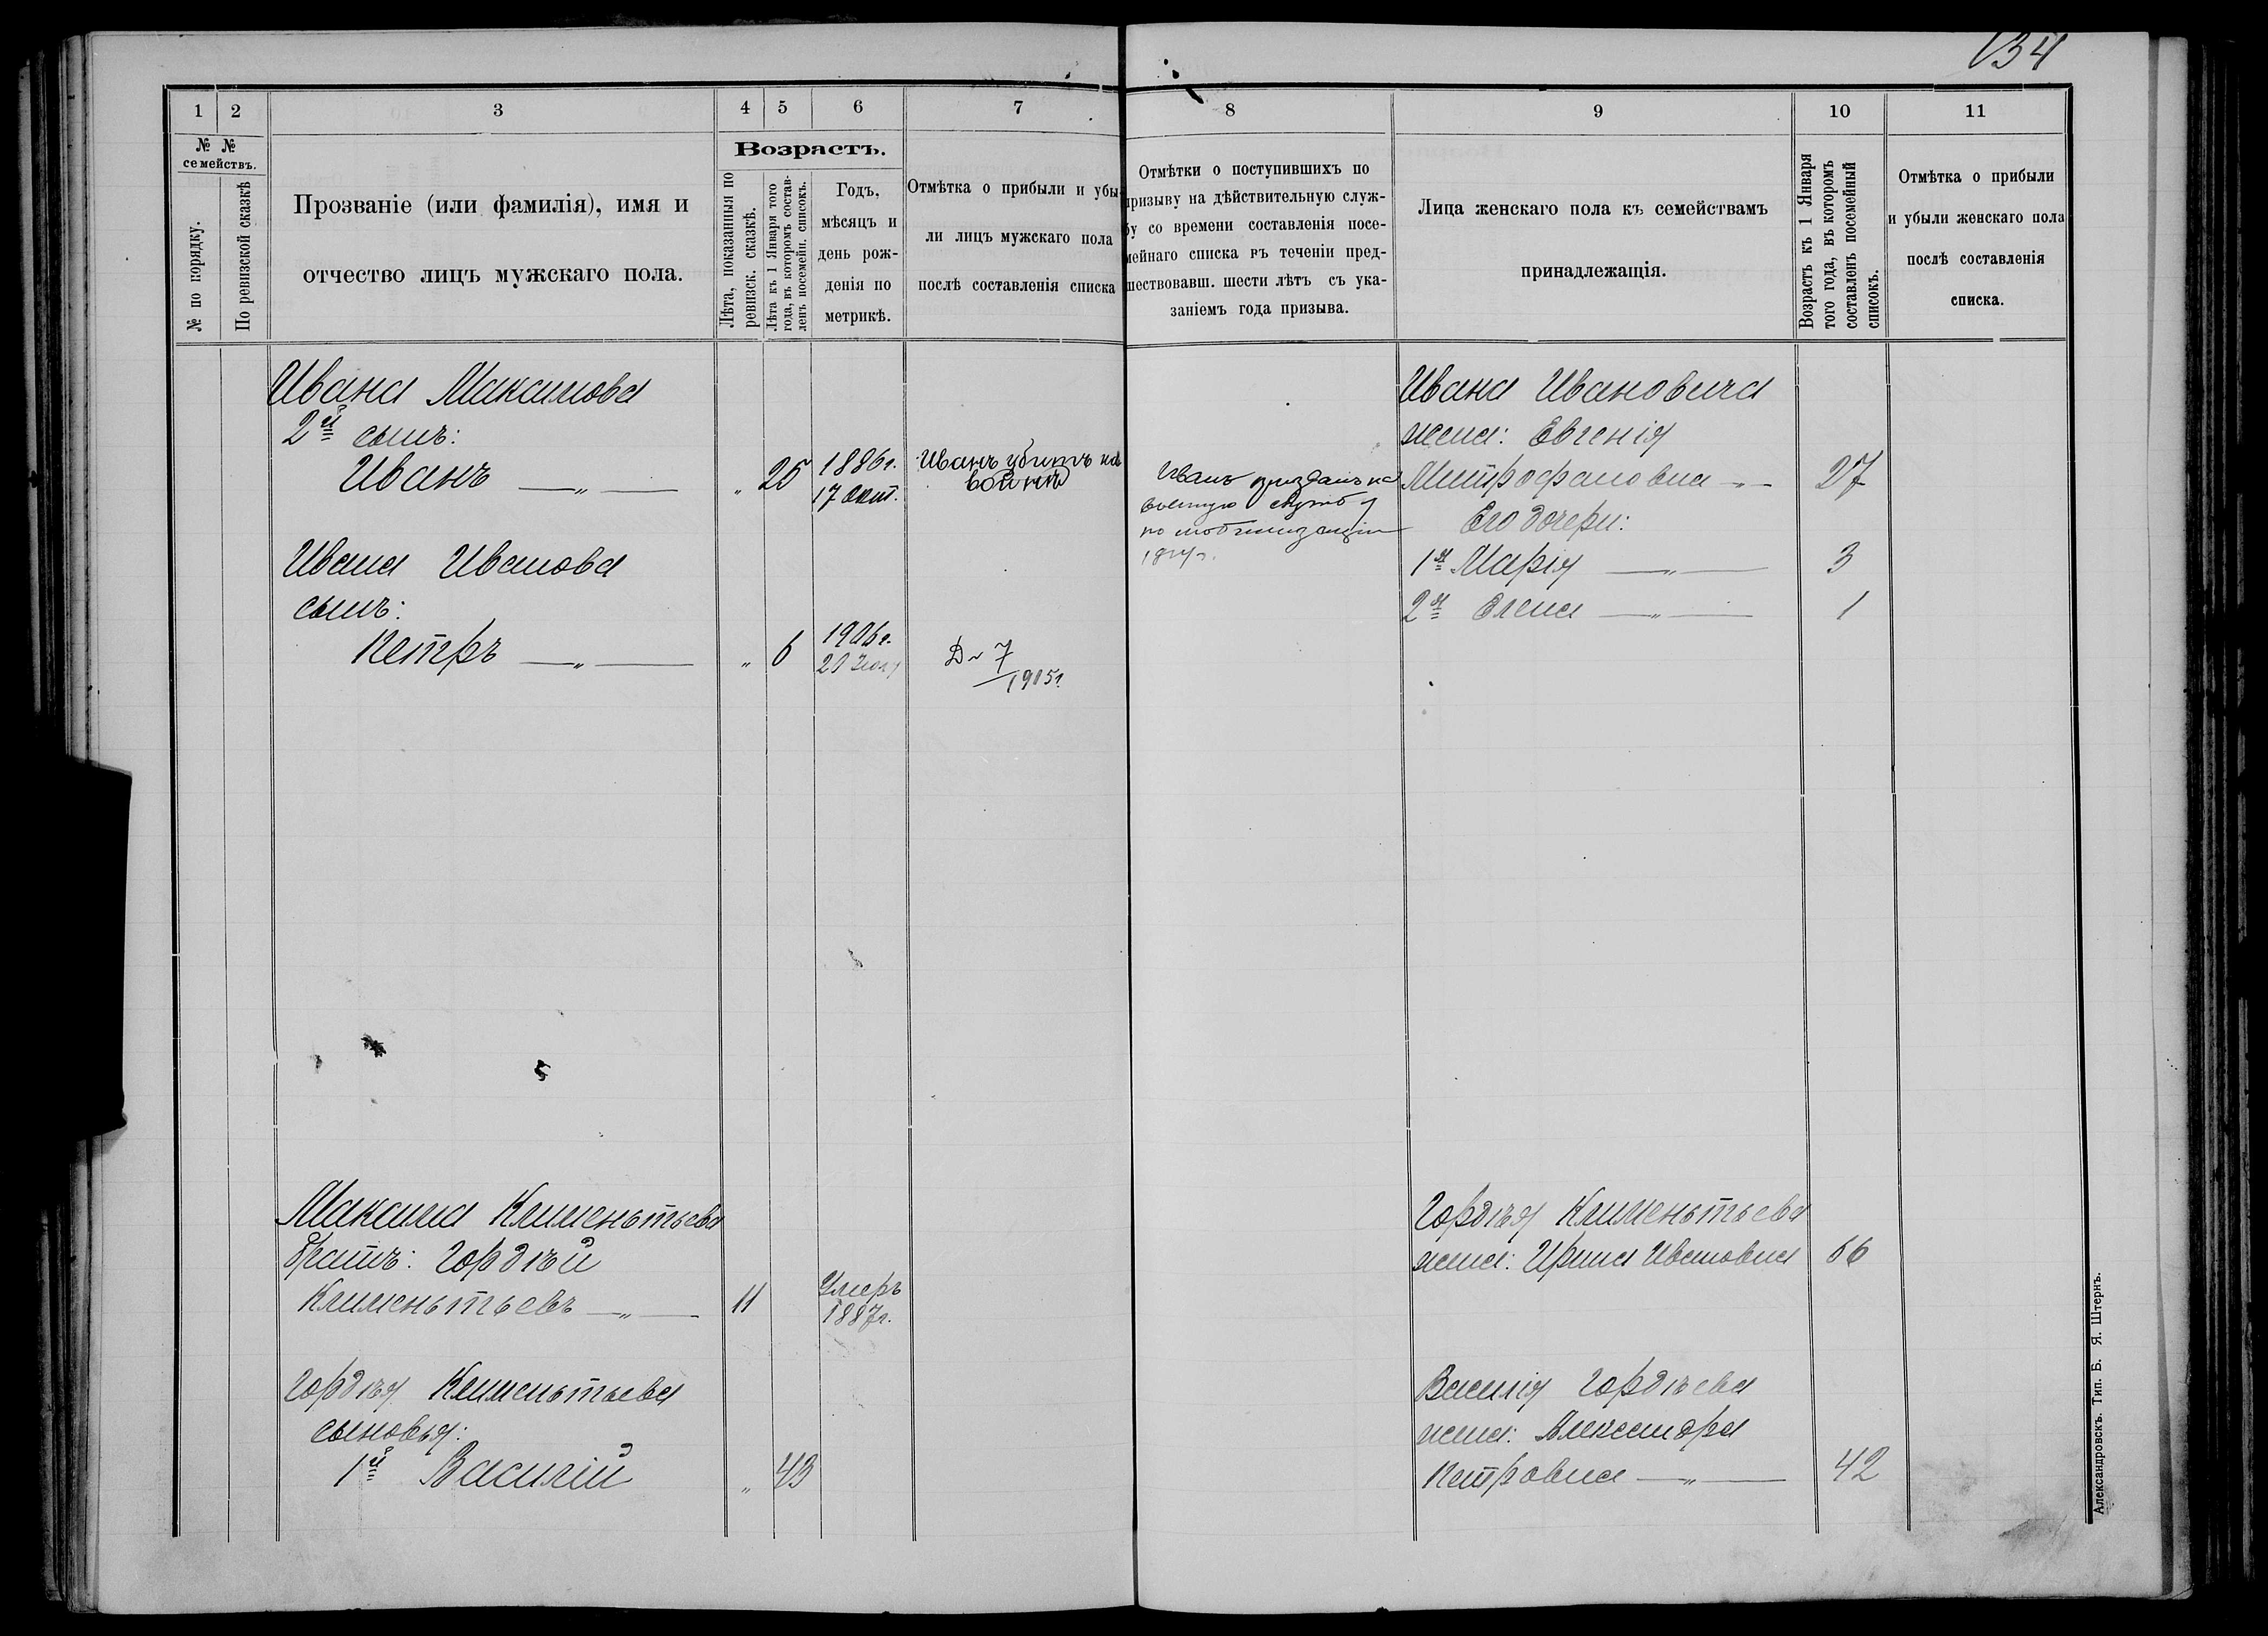 134
1
2
3
4
5
6
7
8
9
10
11
№ №
семействъ.
№ по порядку.
По ревизской сказкѣ
Прозваніе (или фамилія), имя и
отчество лицъ мужскаго пола.
Возрастъ.
Лѣта, показанныя по
ревизск. сказкѣ.
Лѣта къ 1 Января того
года, въ которомъ состав-
ленъ посемейн. списокъ.
Годъ,
мѣсяцъ и
день рож-
денія по
метрикѣ.
Отмѣтка о прибыли и убы-
ли лицъ мужскаго пола
послѣ составленія списка
Отмѣтки о поступившихъ по
призыву на дѣйствительную служ-
бу со времени составленія посе-
мейнаго списка въ теченіи пред-
шествовавш. шести лѣтъ съ ука-
заніемъ года призыва.
Лица женскаго пола къ семействамъ
принадлежащія.
Возрастъ къ 1 Января
того года, въ которомъ
составленъ посемейный
списокъ.
Отмѣтка о прибыли
и убыли женскаго пола
послѣ составленія
списка.
Ивана Максимова
2й сынъ:
Иванъ — „ — „ 25 1886г.
17 Окт.
Иванъ убитъ на
войнѣ
Иванъ призванъ на
военную службу
по мобилизаціи
Ивана Ивановича
жена: Евгенія
Митрофановна — „ — 27
Его дочери:
1я Марія — „ — 3
2я Елена — „ — 1
Ивана Иванова
сынъ:
Петръ — „ — „ 6 1906г.
7
1915г.
Максима Клименьтьева
братъ: Гордѣй
Клименьтьевъ — „ — 11 Умеръ
1887г.
Гордѣя Клименьтьева
жена: Ирина Ивановна 66
Гордѣя Клименьтьева
сыновья:
1й Василій „ 43
Василія Гордѣева
жена: Александра
Петровна — „ — 42
Александровскъ. Тип. Б. Я. Штернъ.